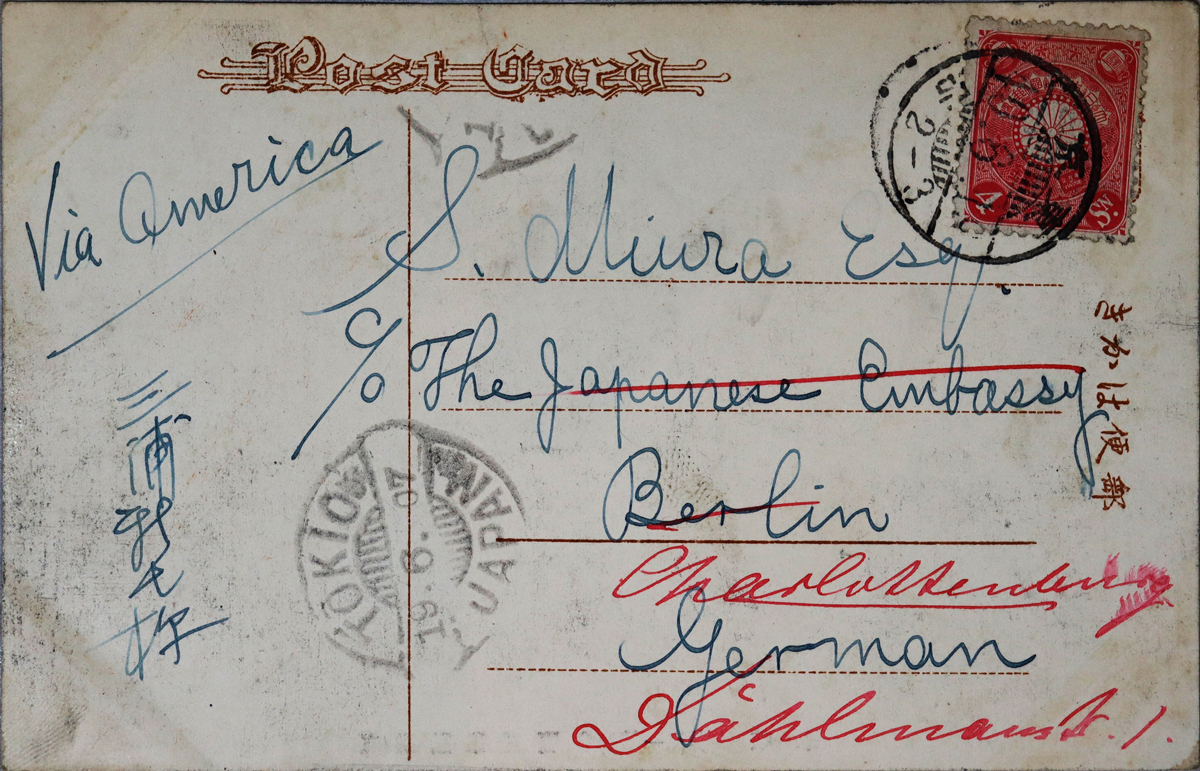 Post Card
Via America
S. Miura Esq.
c/o The Japanese Embassy
Berlin
Charlottenburg
German
Dählmannstr. 1.
三浦
様
きかは便郵
TOKIO
19.6.07
JAPAN
京
2-3
4 Sn.